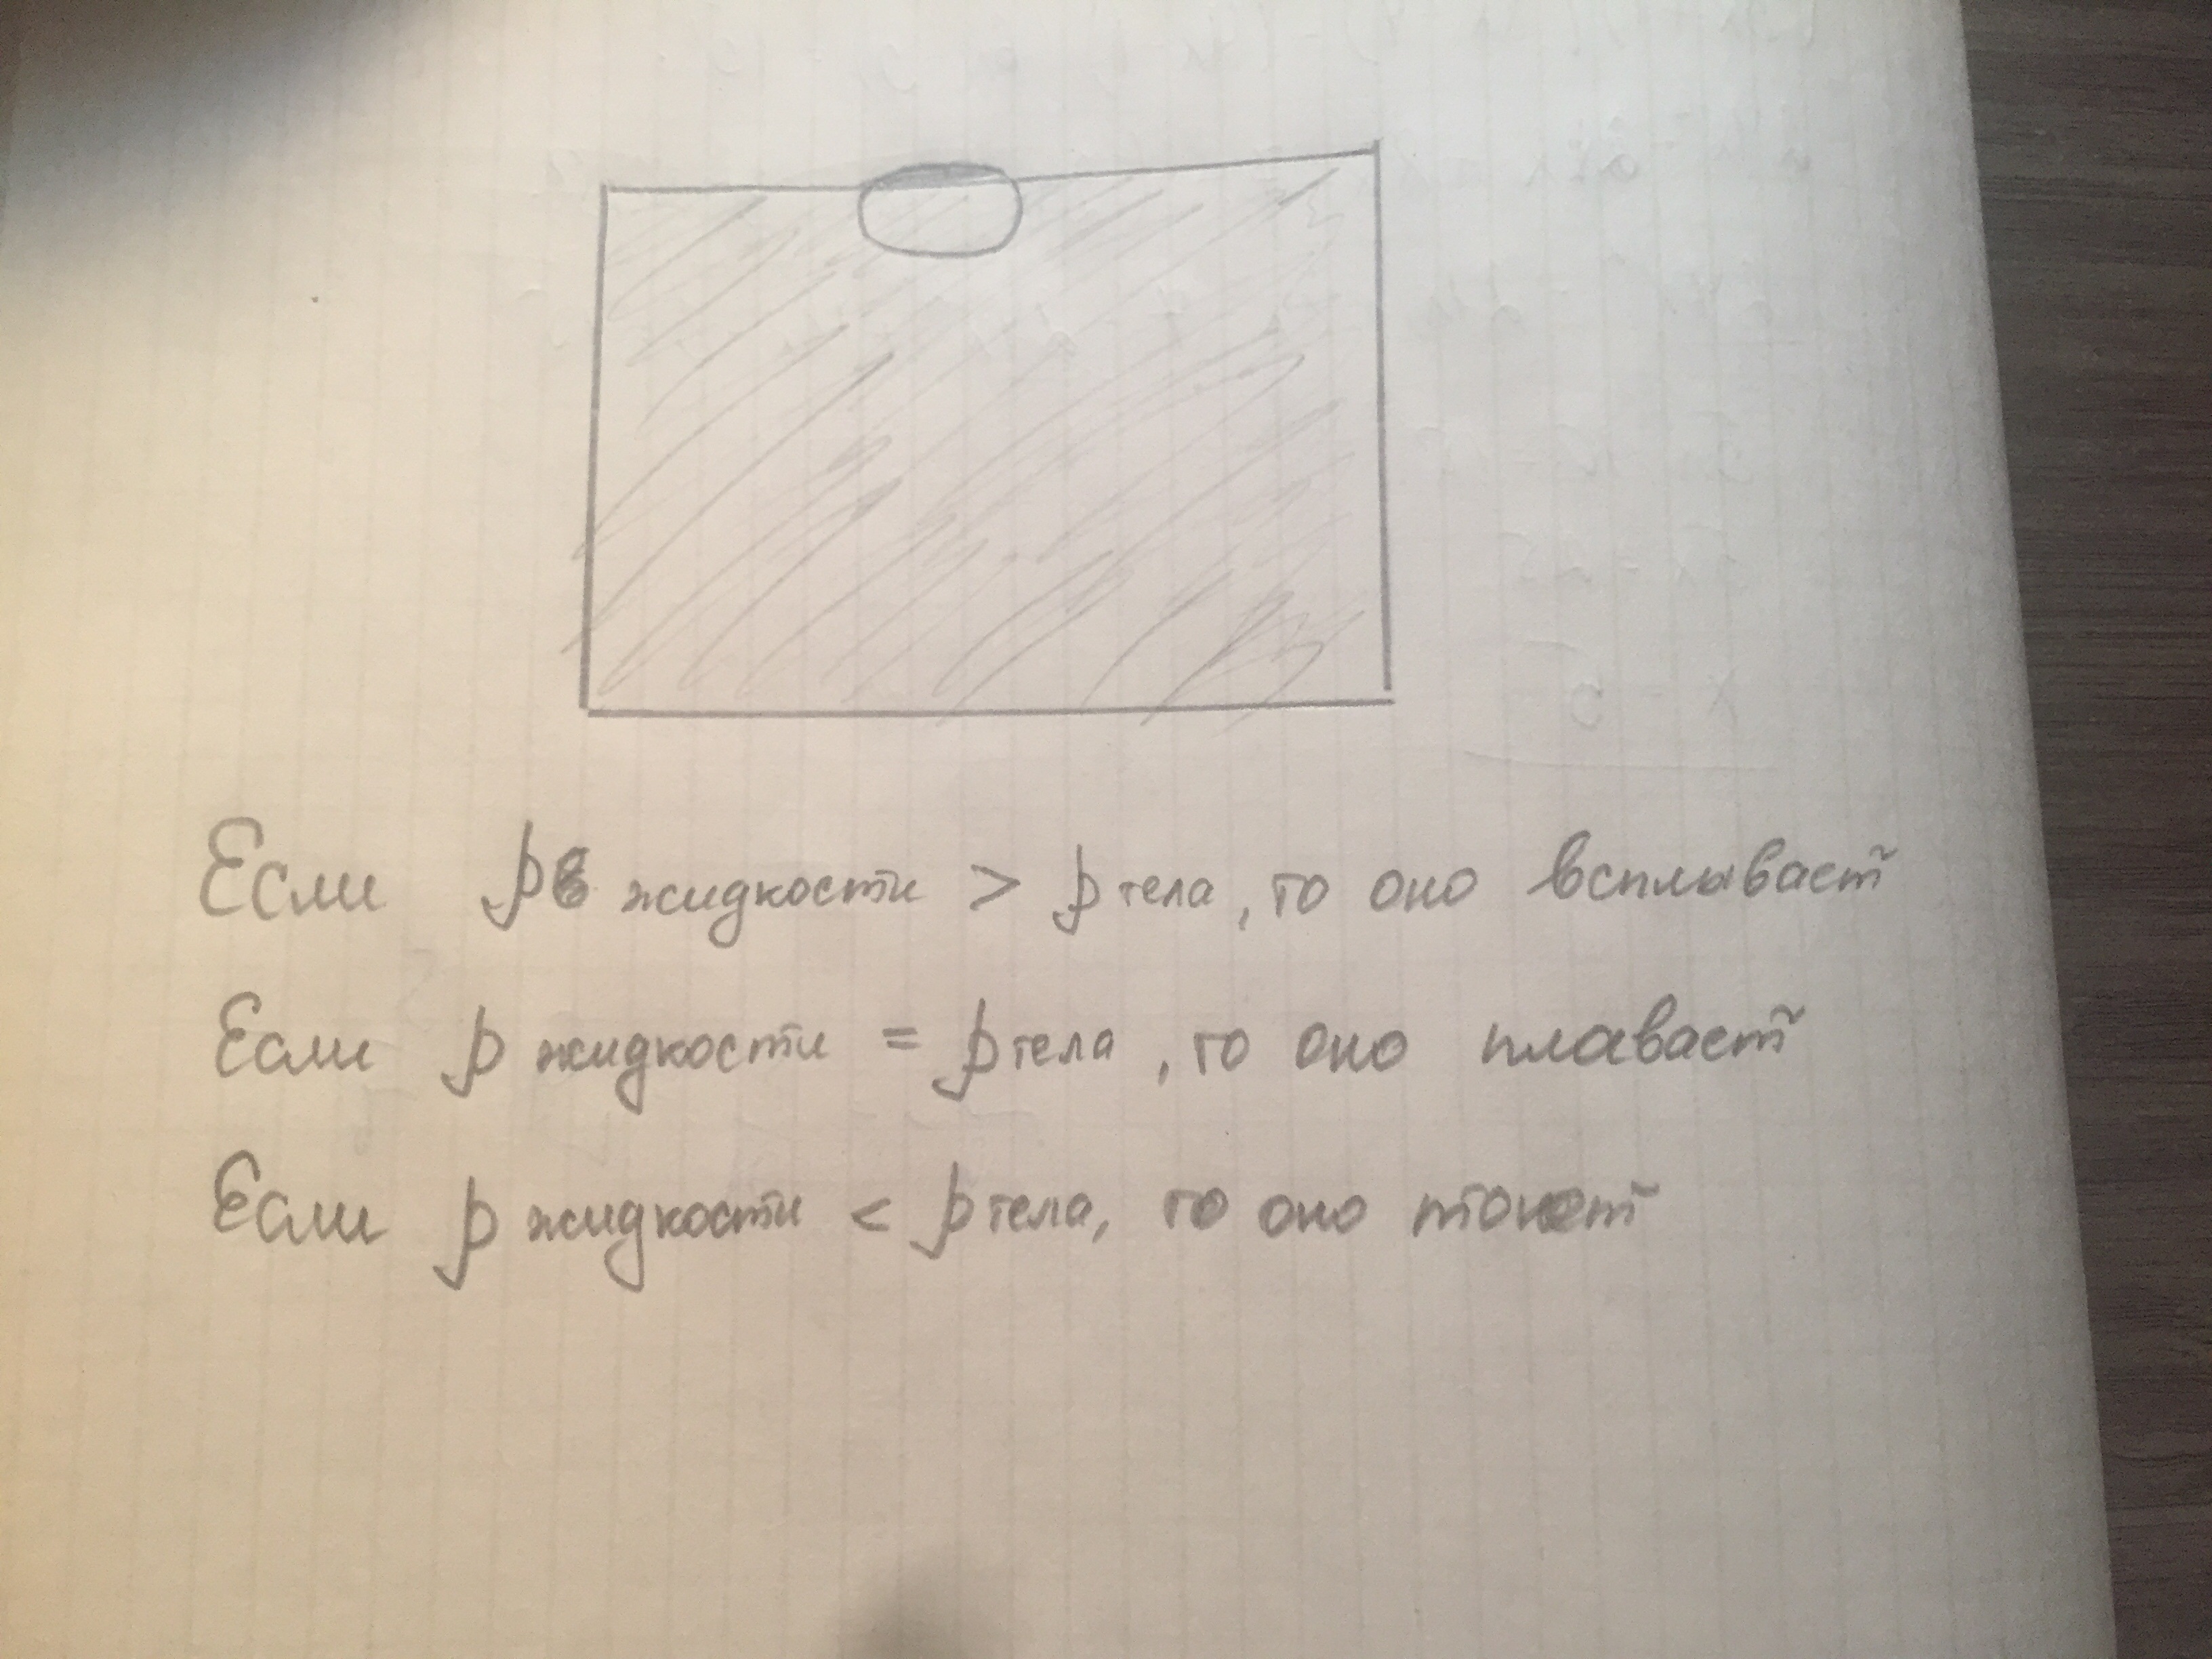 Если ρ жидкости > ρ тела, то оно всплывает
Если ρ жидкости = ρ тела, то оно плавает
Если ρ жидкости < ρ тела, то оно тонет